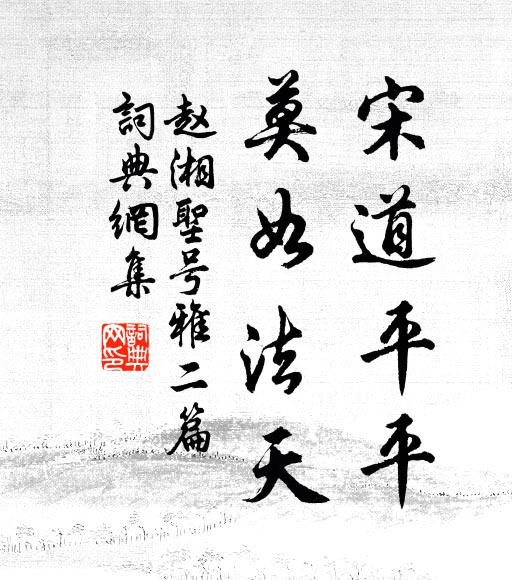 宋道平平
莫如法天
赵湘聖号雅二篇
詞典網集
詞典網印